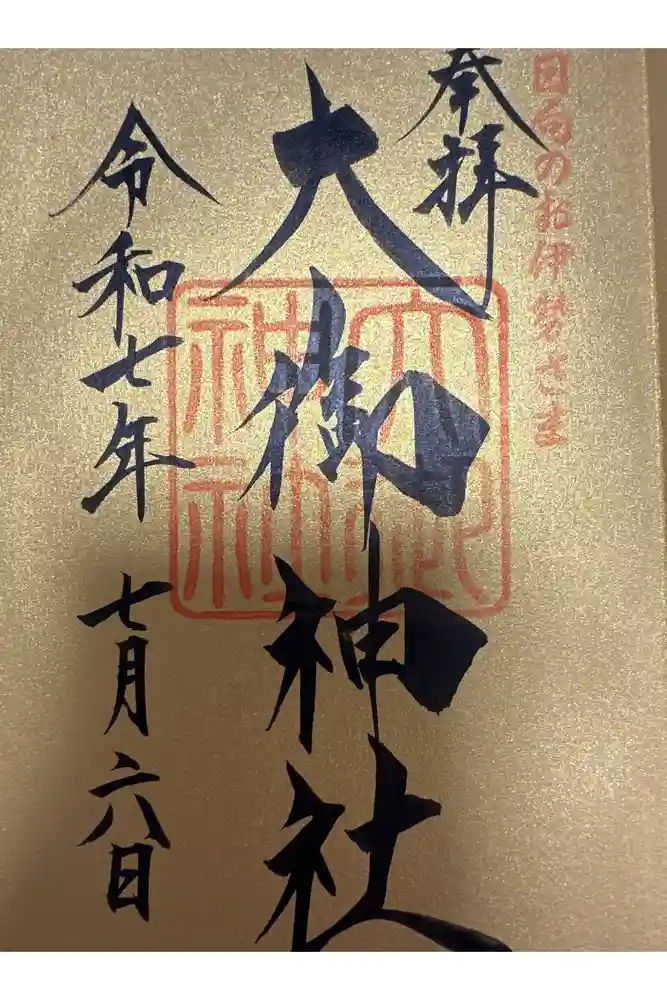 日向のお伊勢さま
奉拝
大御神社
令和七年
七月六日